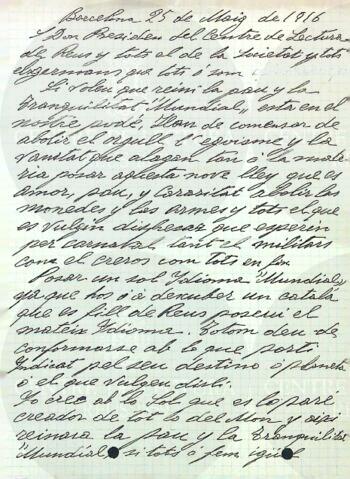 Barcelona 25 de Maig de 1916
Don President del Centre de Lectura
de Reus y tots al de la Societat y tots
dugermans que tots ó som.
Si voleu que reini la pau y la
tranquilitat "Mundial," esta en el
nostre podé, Ham de comensar de
abolir el orgull l'egoisme y la
vanitat que alagan tan á la mate-
ria posar aquesta nove lley que es
amor, pau, y caritat abolir las
monedes y las armes y tots el que
es vulgin disfresar que esperin
per carnabal tant el militars
com el creros com tots en fin
Posar un sol Idioma "Mundial"
ya que hos ó á descuber un catala
que es fill de Reus posem el
mateix Idioma. Y tom deu de
conformarse ab lo que porti
indicat pel seu destino ó planeta
ó el que vulgen dirli.
Yo crec ab lo Sol que es lo paré
creador de tot lo del Mon y aixi
reinara la pau y la tranquilitat
Mundial, si tots ó fem igual